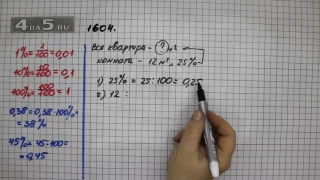 4us5.ru
1604.
Вся квартира - ? м²
комната - 12 м², 25%
1) 25% = 25 : 100 = 0,25
2) 12 :
1% = 1/100 = 0,01
10% = 10/100 = 0,1
100% = 100/100 = 1
0,38 = 0,38·100% =
= 38%
45% = 45:100 =
= 0,45